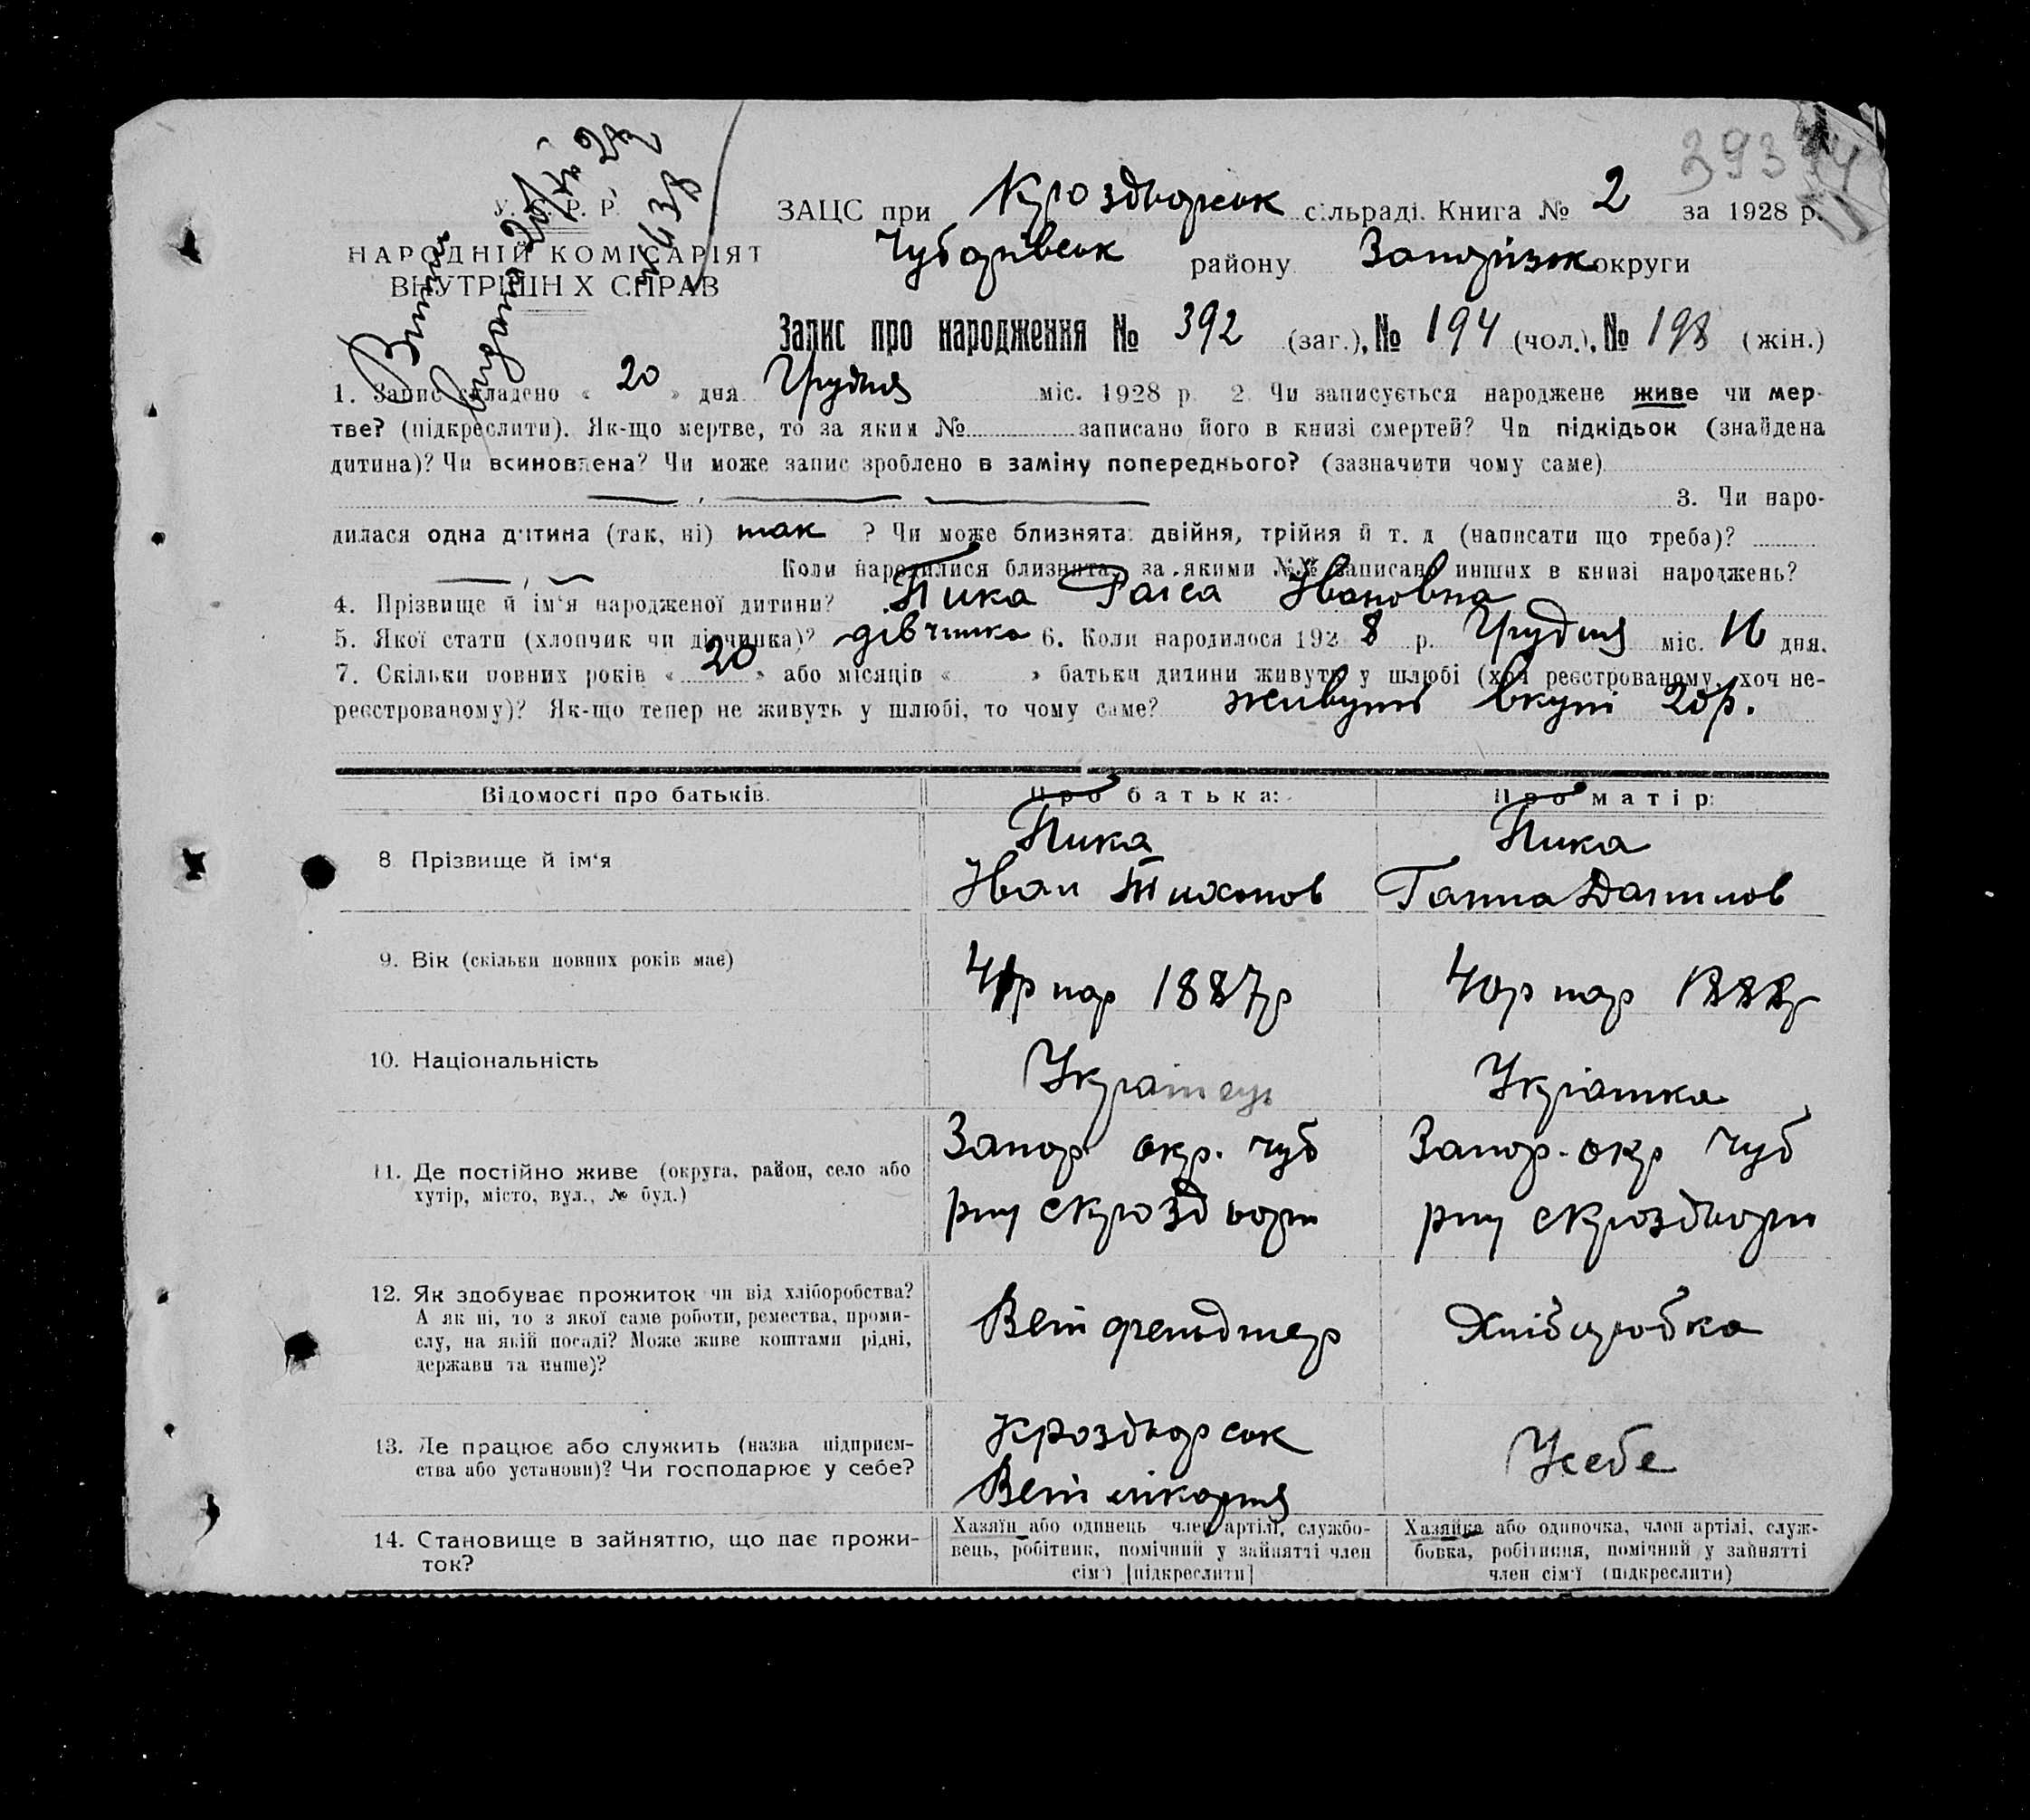 39
У. С. Р. Р.
НАРОДНІЙ КОМІСАРІЯТ
ВНУТРІШН Х СПРАВ
Витяг
видано 20/
№ 638
ЗАЦС при Круоздворськ сільраді. Книга № 2 за 1928 р.
Чубарівськ району Запорізьк округи
Запис про народження № 392 (заг.), № 194 (чол.), № 198 (жін.)
1. Запис складено « 20 » дня Грудня міс. 1928 р. 2. Чи записується народжене живе чи мер-
тве? (підкреслити). Як-що мертве, то за яким № записано його в книзі смертей? Чи підкідьок (знайдена
дитина)? Чи всиновлена? Чи може запис зроблено в заміну попереднього? (зазначити чому саме)
3. Чи наро-
дилася одна дитина (так, ні) так ? Чи може близнята: двійня, трійня й т. д (написати що треба)?
Коли народилися близнята, за якими №№ записано инших в книзі народжень?
4. Прізвище й ім'я народженої дитини? Пика Раїса Івановна
5. Якої стати (хлопчик чи дівчинка)? дівчинка 6. Коли народилося 192 8 р. Грудня міс. 16 дня.
7. Скільки повних років « 20 » або місяців « » батьки дитини живуть у шлюбі (хоч реєстрованому, хоч не-
реєстрованому)? Як-що тепер не живуть у шлюбі, то чому саме? живуть вкупі 20р.
Відомості про батьків. Про батька: Про матір:
8. Прізвище й ім'я Пика Пика
Іван Тихонов Ганна Данилов
9. Вік (скільки повних років має) 41р нар 1887р 40р нар 1888р
10. Національність Українець Укріанка
11. Де постійно живе (округа, район, село або Запор. окр. Чуб Запор. окр Чуб
хутір, місто, вул., № буд.) рну
12. Як здобуває прожиток чи від хліборобства?
А як ні, то з якої саме роботи, ремества, проми-
слу, на якій посаді? Може живе коштами рідні, Вет фельдшер Хліборобка
держави та инше)?
13. Де працює або служить (назва підприєм- Кроздворськ Усебе
ства або установи)? Чи господарює у себе? Вет лікарня
14. Становище в зайняттю, що дає прожи- Хазяїн або одинець член артілі, службо- Хазяйка або одиночка, член артілі, служ-
ток? вець, робітник, помічний у зайнятті член бовка, робітниця, помічний у зайнятті
сім'ї [підкреслити] член сім'ї (підкреслити)